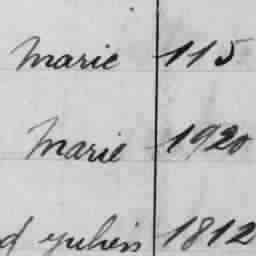 Marie 115
Marie 1920
d Julien 1812